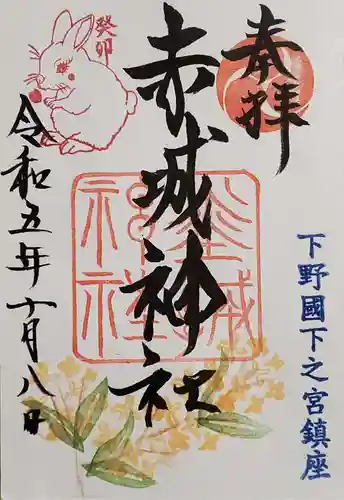 奉拝
癸卯
赤城神社
令和五年十月八日
下野國下之宮鎮座
赤城神社